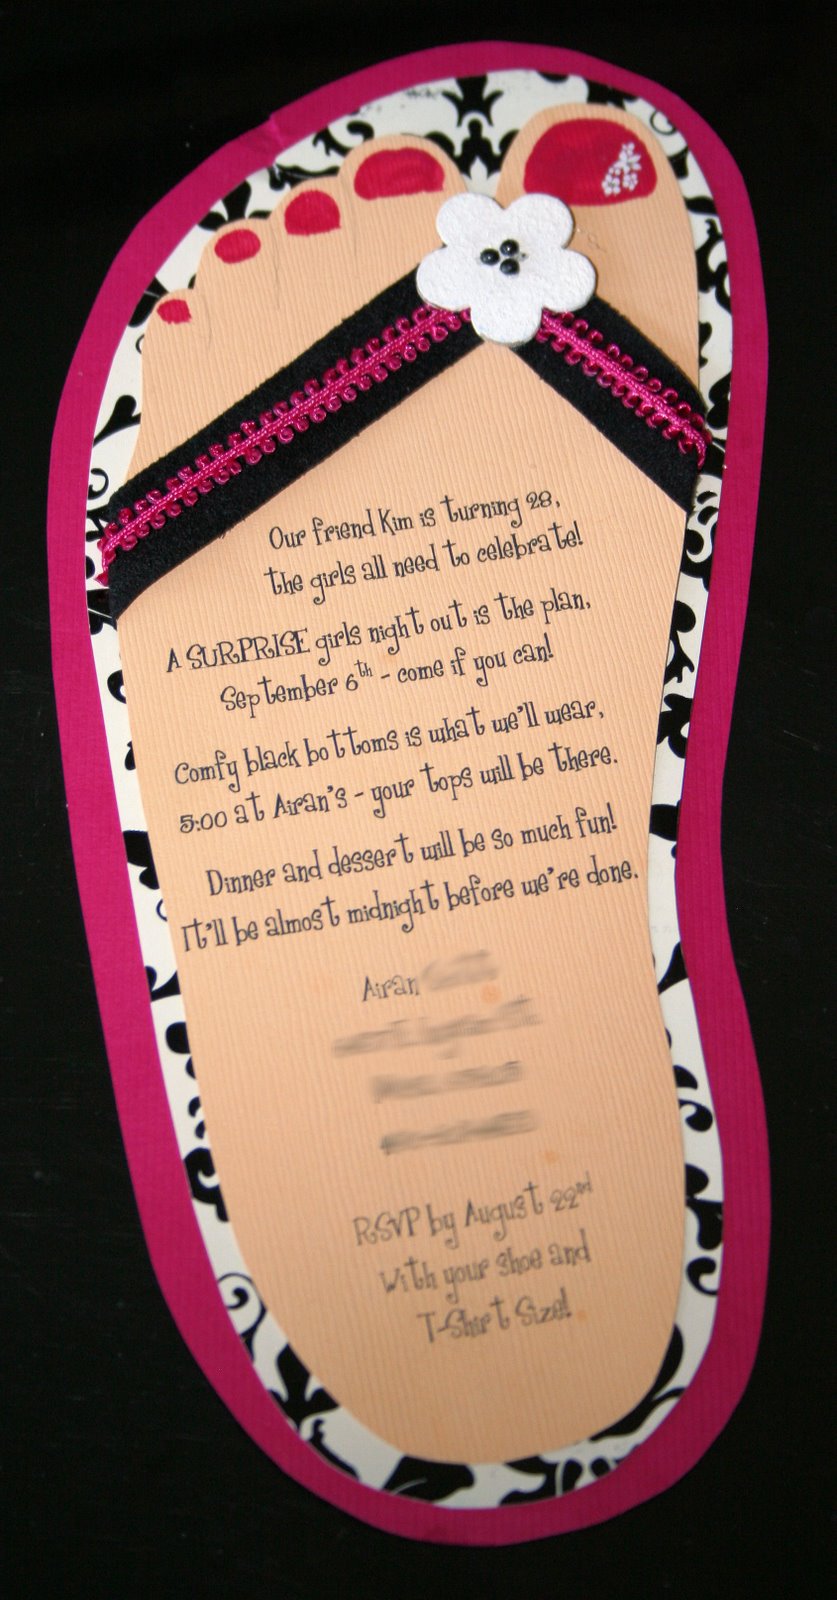 Our friend Kim is turning 28,
the girls all need to celebrate!
A SURPRISE girls night out is the plan,
September 6th - come if you can!
Comfy black bottoms is what we'll wear,
5:00 at Airan's - your tops will be there.
Dinner and dessert will be so much fun!
It'll be almost midnight before we're done.
Airan
RSVP by August 22nd
With your shoe and
T-Shirt Size!